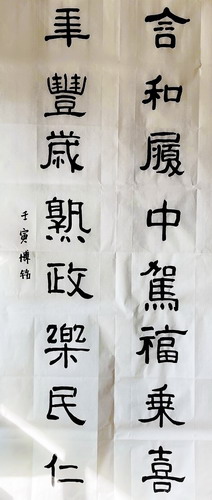 含和履中駕福乘喜
年豐歲熟政樂民仁
壬寅博铭